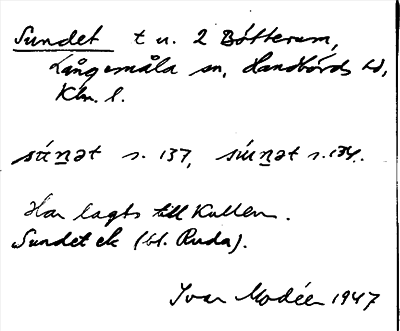 Sundet t u. 2 Bötterum,
Långemåla sn, Handbörds hd,
Klm. l.
s. 137, s. 134.
Har lagts till Kullen.
Sundet ek (bl. Ruda).
Ivar Modéer 1947